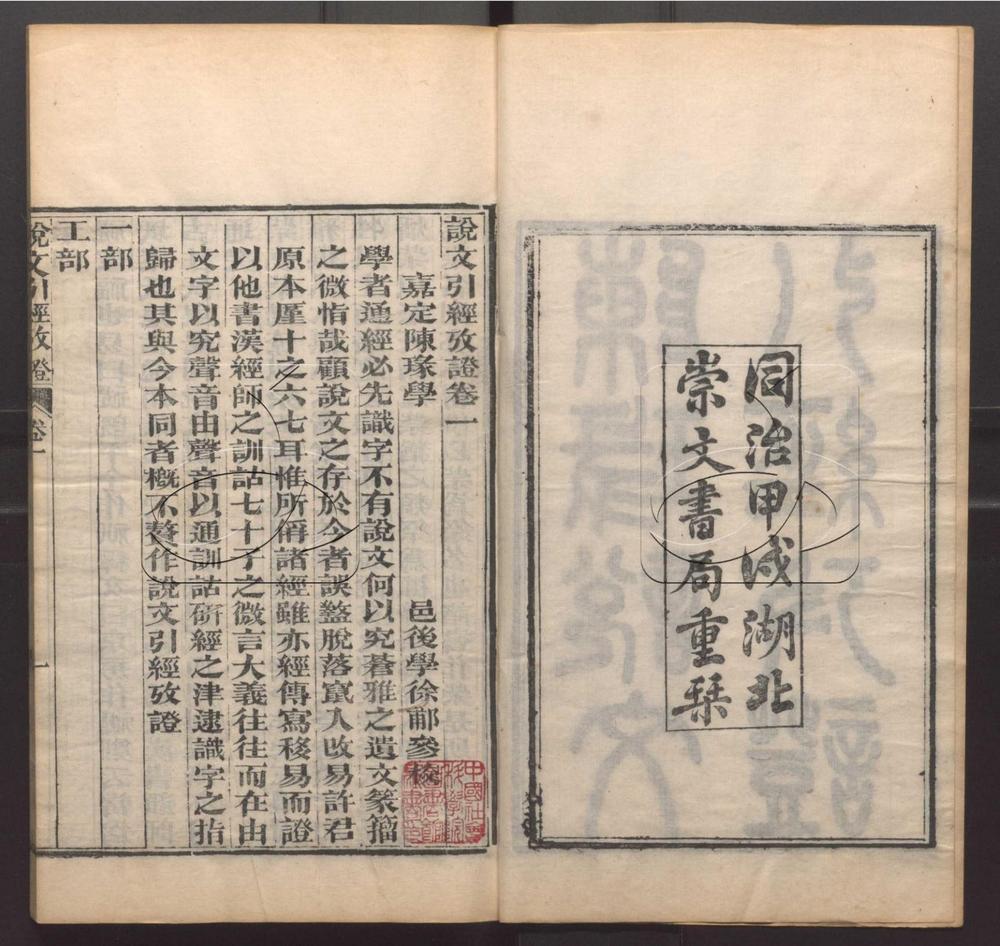 同治甲戌湖北
崇文書局重栞
說文引經攷證卷一
嘉定陳瑑學　邑後學徐郙參校
學者通經必先識字不有說文何以究蒼雅之遺文篆籀
之微恉哉顧說文之存於今者誤盭脫落竄入改易許君
原本厪十之六七耳惟所偁諸經雖亦經傳寫移易而證
以他書漢經師之訓詁七十子之微言大義往往而在由
文字以究聲音由聲音以通訓詁研經之津逮識字之指
歸也其與今本同者槪不贅作說文引經攷證
一部
丄部
說文引經攷證　卷一　一